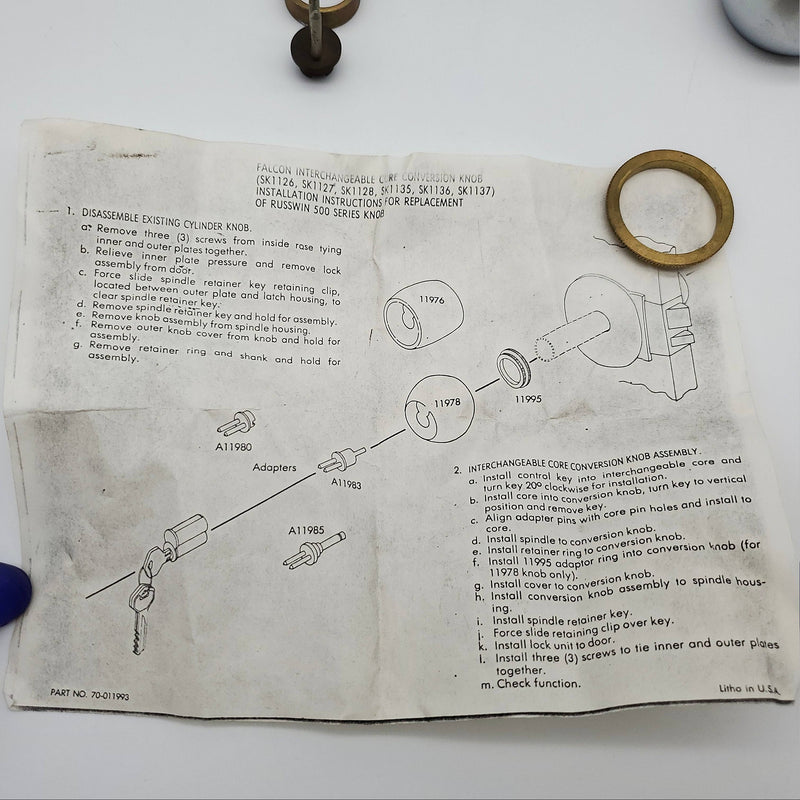 FALCON INTERCHANGEABLE CORE CONVERSION KNOB
(SK1126, SK1127, SK1128, SK1135, SK1136, SK1137)
INSTALLATION INSTRUCTIONS FOR REPLACEMENT
OF RUSSWIN 500 SERIES KNOB
1. DISASSEMBLE EXISTING CYLINDER KNOB.
a. Remove three (3) screws from inside rose tying
inner and outer plates together.
b. Relieve inner plate pressure and remove lock
assembly from door.
c. Force slide spindle retainer key retaining clip,
located between outer plate and latch housing, to
clear spindle retainer key.
d. Remove spindle retainer key and hold for assembly.
e. Remove knob assembly from spindle housing.
f. Remove outer knob cover from knob and hold for
assembly.
g. Remove retainer ring and shank and hold for
assembly.
11976
11978
11995
A11980
Adapters
A11983
A11985
2. INTERCHANGEABLE CORE CONVERSION KNOB ASSEMBLY.
a. Install control key into interchangeable core and
turn key 20º clockwise for installation.
b. Install core into conversion knob, turn key to vertical
position and remove key.
c. Align adapter pins with core pin holes and install to
core.
d. Install spindle to conversion knob.
e. Install retainer ring to conversion knob.
f. Install 11995 adaptor ring into conversion knob (for
11978 knob only).
g. Install cover to conversion knob.
h. Install conversion knob assembly to spindle hous-
ing.
i. Install spindle retainer key.
j. Force slide retaining clip over key.
k. Install lock unit to door.
l. Install three (3) screws to tie inner and outer plates
together.
m. Check function.
PART NO. 70-011993
Litho in U.S.A.